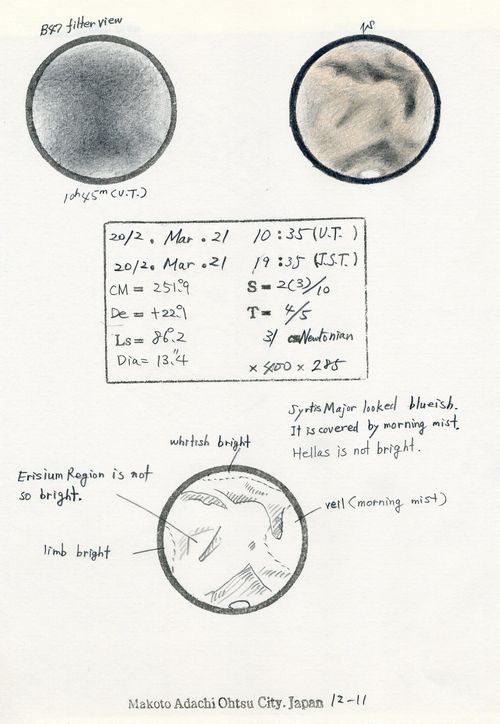 B47 filter view
1S
10h45m (U.T.)
2012. Mar. 21 10:35 (U.T.)
2012. Mar. 21 19:35 (J.S.T.)
CM = 251.°9 S = 2(3)/10
De = +22.°1 T = 4/5
Ls = 86.°2 31 cm Newtonian
Dia = 13."4 ×400 ×285
Syrtis Major looked blueish.
It is covered by morning mist.
Hellas is not bright.
whitish bright
Erisium Region is not
so bright.
veil (morning mist)
limb bright
Makoto Adachi Ohtsu City. Japan 12-11